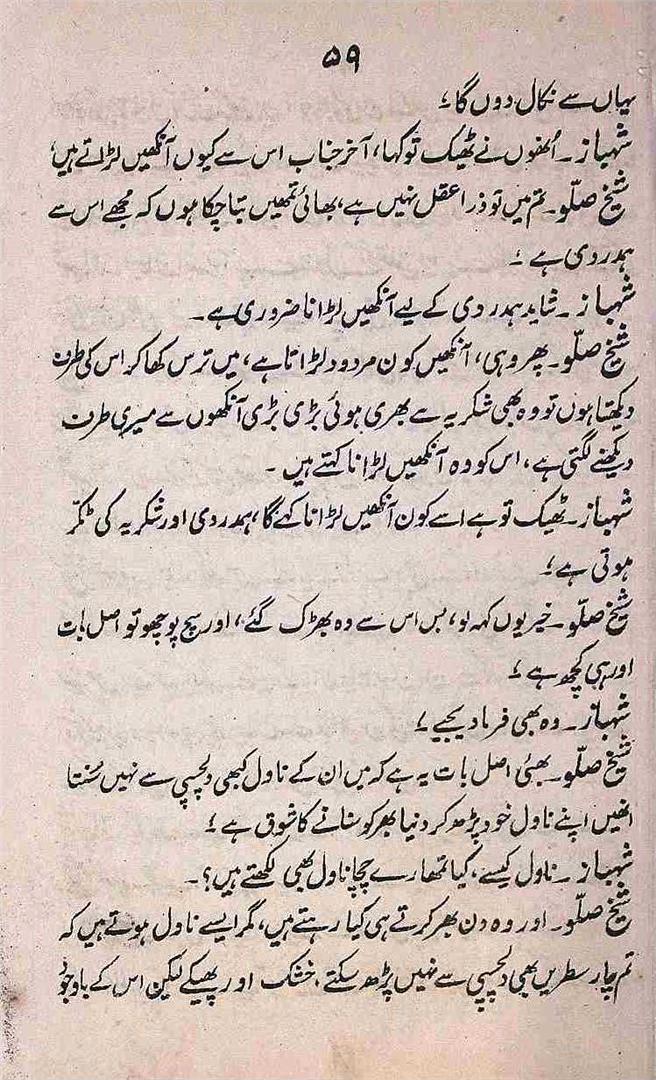 ۵۹
یہاں سے نکال دوں گا؛
شہباز۔ اُنھوں نے ٹھیک تو کہا، آخر جناب اس سے کیوں آنکھیں لڑاتے ہیں؛
شیخ صلّو۔ تم میں تو ذرا عقل نہیں ہے، بھائی تمھیں بتا چکا ہوں کہ مجھے اس سے
ہمدردی ہے ؛
شہباز۔ شاید ہمدردی کے لیے آنکھیں لڑانا ضروری ہے۔
شیخ صلّو۔ پھر وہی، آنکھیں کون مردود لڑاتا ہے، میں ترس کھا کر اس کی طرف
دیکھتا ہوں تو وہ بھی شکریہ سے بھری ہوئی بڑی بڑی آنکھوں سے میری طرف
دیکھنے لگتی ہے، اس کو وہ آنکھیں لڑانا کہتے ہیں ۔
شہباز۔ ٹھیک تو ہے اسے کون آنکھیں لڑانا کہے گا، ہمدردی اور شکریہ کی ٹکّر
ہوتی ہے ؛
شیخ صلّو۔ خیر یوں کہہ لو، بس اس سے وہ بھڑک گئے، اور سچ پوچھو تو اصل بات
اور ہی کچھ ہے ؛
شہباز۔ وہ بھی فرما دیجیے ؛
شیخ صلّو۔ بھئی اصل بات یہ ہے کہ میں ان کے ناول کبھی دلچسپی سے نہیں سُنتا
انھیں اپنے ناول خود پڑھ کر دنیا بھر کو سنانے کا شوق ہے ؛
شہباز۔ ناول کیسے، کیا تمھارے چچا ناول بھی لکھتے ہیں؟۔
شیخ صلّو۔ اور وہ دن بھر کرتے ہی کیا رہتے ہیں، مگر ایسے ناول ہوتے ہیں کہ
تم چار سطریں بھی دلچسپی سے نہیں پڑھ سکتے، خشک اور پھیکے لیکن اس کے باوجود